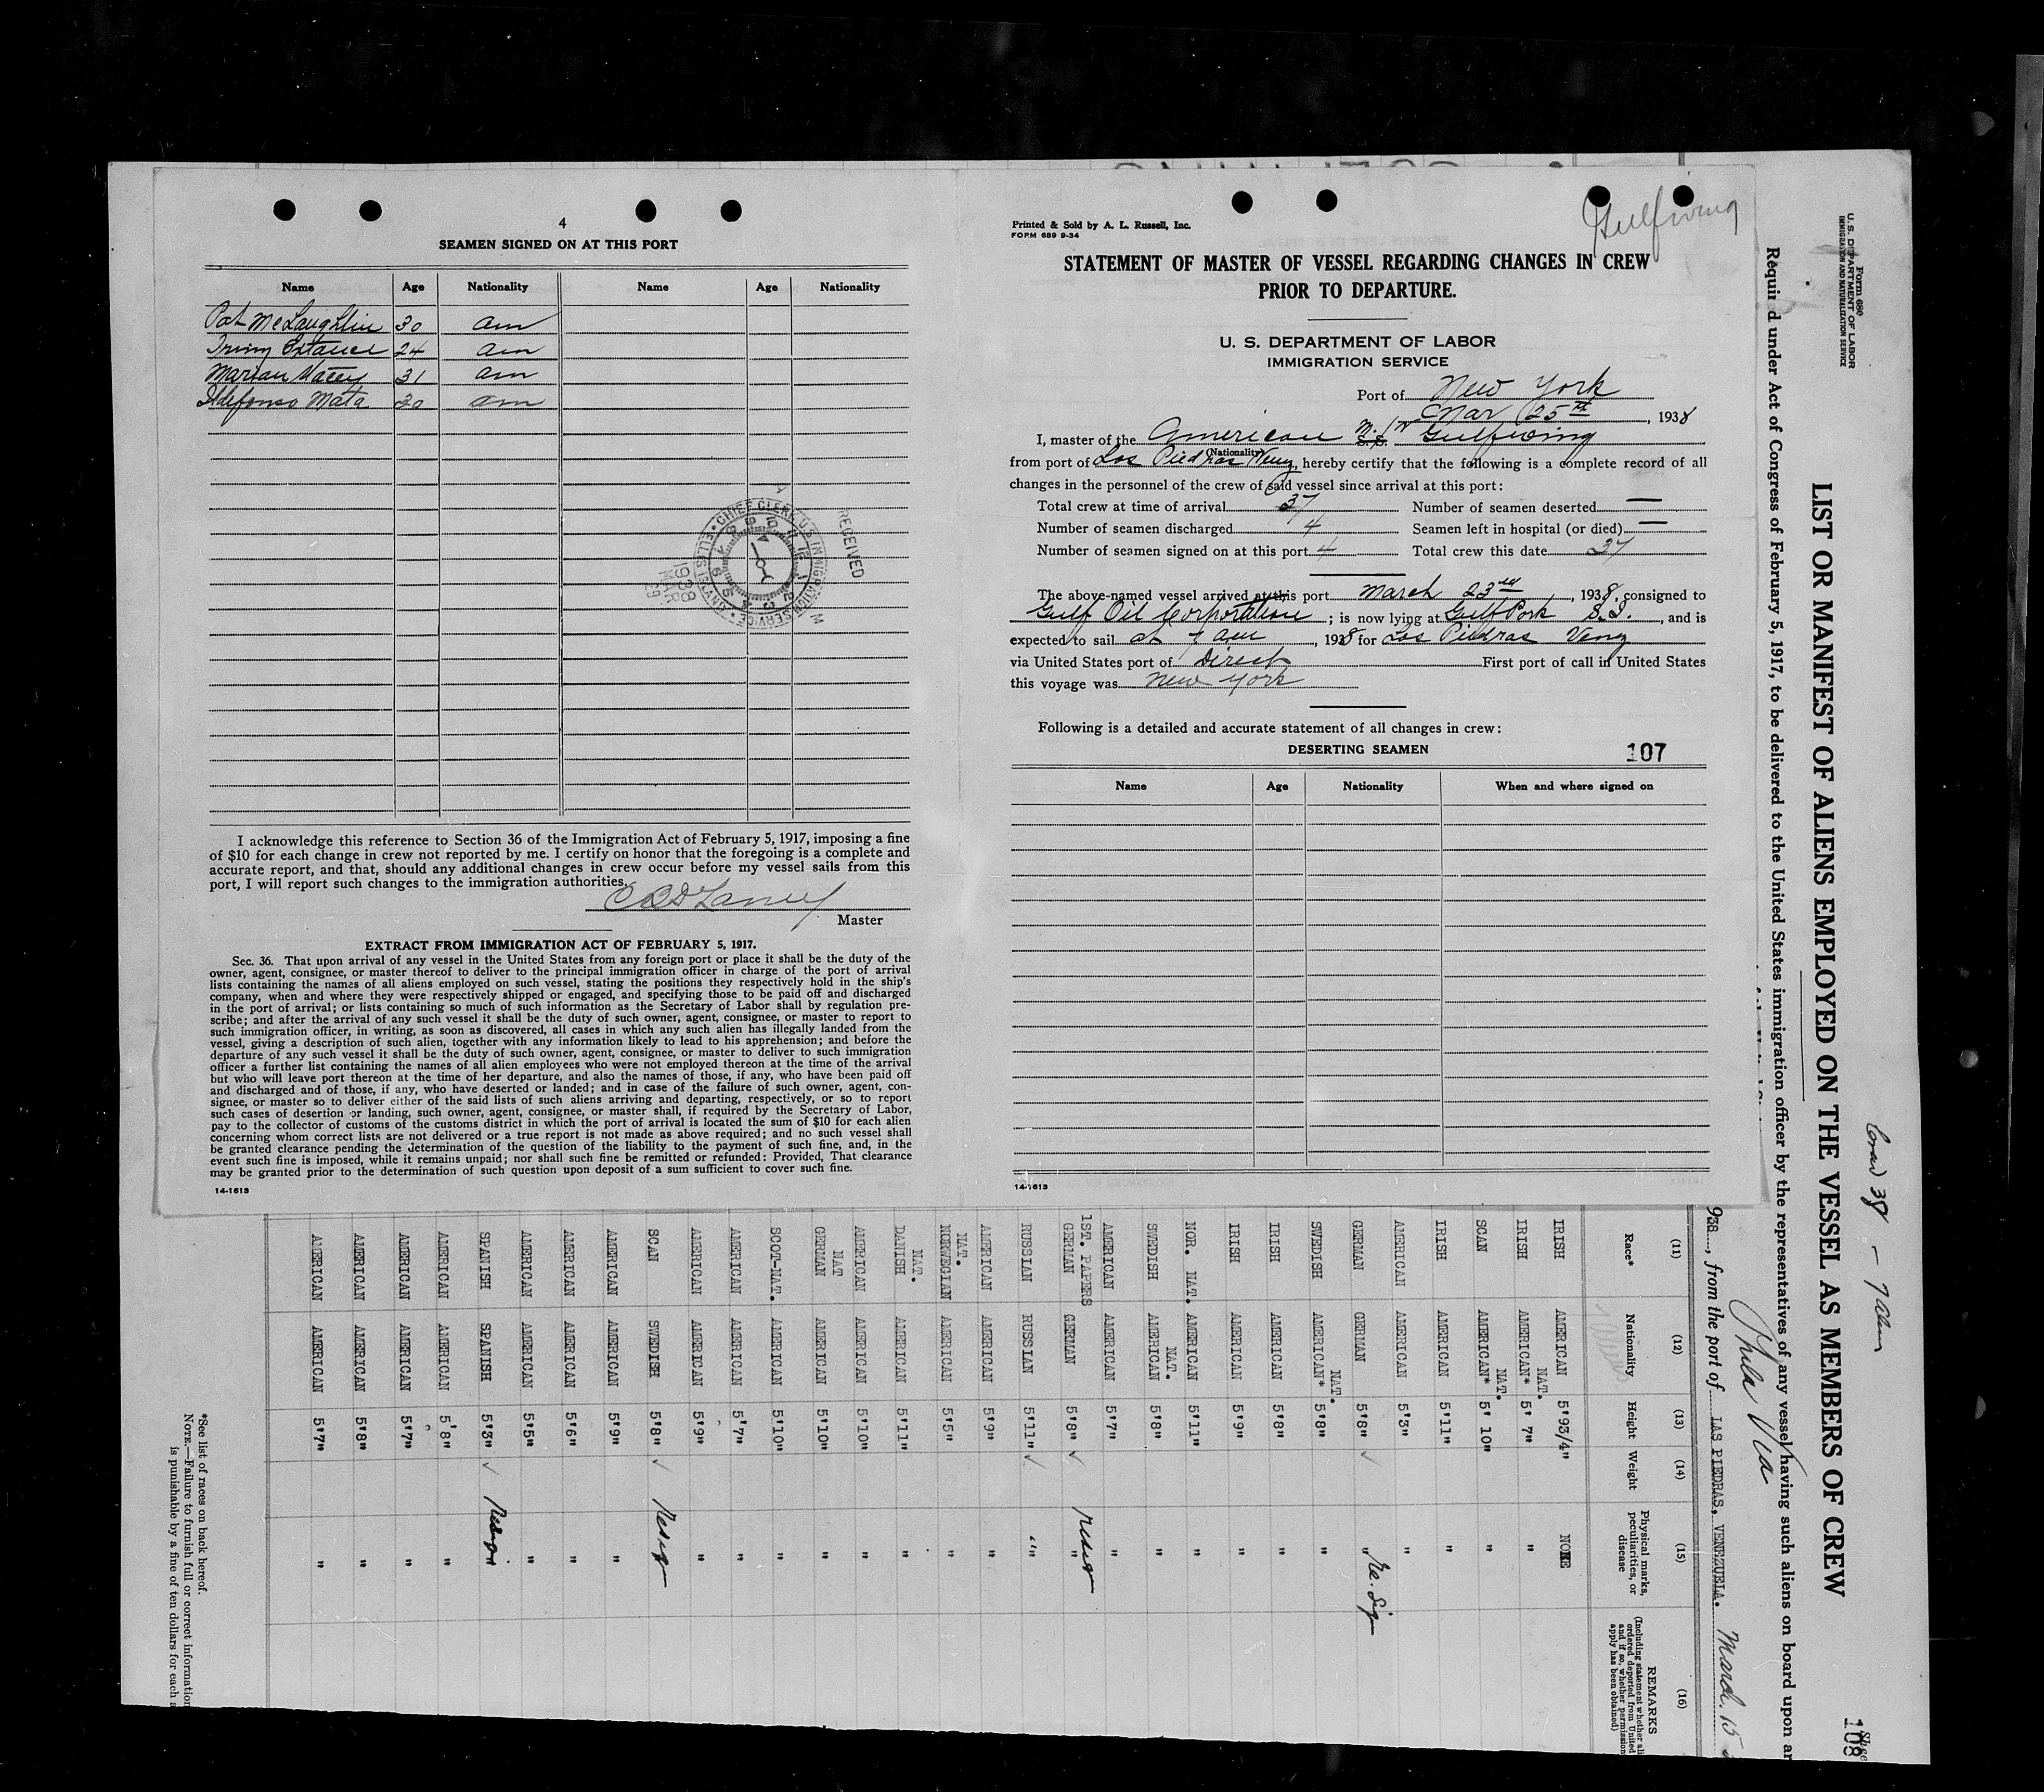 4
SEAMEN SIGNED ON AT THIS PORT
Name Age Nationality Name Age Nationality
Pat McLaughlin 30 am
24 am
31 am
Ildefonso Mata 30 am
RECEIVED
CHIEF CLERK U.S. IMMIGRATION SERVICE
ELLIS ISLAND
1938 MAR 29
I acknowledge this reference to Section 36 of the Immigration Act of February 5, 1917, imposing a fine
of $10 for each change in crew not reported by me. I certify on honor that the foregoing is a complete and
accurate report, and that, should any additional changes in crew occur before my vessel sails from this
port, I will report such changes to the immigration authorities.
Master
EXTRACT FROM IMMIGRATION ACT OF FEBRUARY 5, 1917.
Sec. 36. That upon arrival of any vessel in the United States from any foreign port or place it shall be the duty of the
owner, agent, consignee, or master thereof to deliver to the principal immigration officer in charge of the port of arrival
lists containing the names of all aliens employed on such vessel, stating the positions they respectively hold in the ship's
company, when and where they were respectively shipped or engaged, and specifying those to be paid off and discharged
in the port of arrival; or lists containing so much of such information as the Secretary of Labor shall by regulation pre-
scribe; and after the arrival of any such vessel it shall be the duty of such owner, agent, consignee, or master to report to
such immigration officer, in writing, as soon as discovered, all cases in which any such alien has illegally landed from the
vessel, giving a description of such alien, together with any information likely to lead to his apprehension; and before the
departure of any such vessel it shall be the duty of such owner, agent, consignee, or master to deliver to such immigration
officer a further list containing the names of all alien employees who were not employed thereon at the time of the arrival
but who will leave port thereon at the time of her departure, and also the names of those, if any, who have been paid off
and discharged and of those, if any, who have deserted or landed; and in case of the failure of such owner, agent, con-
signee, or master so to deliver either of the said lists of such aliens arriving and departing, respectively, or so to report
such cases of desertion or landing, such owner, agent, consignee, or master shall, if required by the Secretary of Labor,
pay to the collector of customs of the customs district in which the port of arrival is located the sum of $10 for each alien
concerning whom correct lists are not delivered or a true report is not made as above required; and no such vessel shall
be granted clearance pending the determination of the question of the liability to the payment of such fine, and, in the
event such fine is imposed, while it remains unpaid; nor shall such fine be remitted or refunded: Provided, That clearance
may be granted prior to the determination of such question upon deposit of a sum sufficient to cover such fine.
14-1613
Gulfwing
Printed & Sold by A. L. Russell, Inc.
FORM 689 9-34
STATEMENT OF MASTER OF VESSEL REGARDING CHANGES IN CREW
PRIOR TO DEPARTURE.
U. S. DEPARTMENT OF LABOR
IMMIGRATION SERVICE
Port of New York
Mar 25th, 1938
I, master of the American S.S. Gulfwing
(Nationality)
from port of Los Piedras Venz, hereby certify that the following is a complete record of all
changes in the personnel of the crew of said vessel since arrival at this port:
Total crew at time of arrival 37 Number of seamen deserted —
Number of seamen discharged 4 Seamen left in hospital (or died) —
Number of seamen signed on at this port 4 Total crew this date 37
The above-named vessel arrived at this port March 23rd, 1938, consigned to
Gulf Oil Corporation; is now lying at Gulf Port S.I., and is
expected to sail at 7 am, 1938 for Los Piedras Venz
via United States port of Direct First port of call in United States
this voyage was New York
Following is a detailed and accurate statement of all changes in crew:
DESERTING SEAMEN
107
Name Age Nationality When and where signed on
14-1613
Form 680
U. S. DEPARTMENT OF LABOR
IMMIGRATION AND NATURALIZATION SERVICE
LIST OR MANIFEST OF ALIENS EMPLOYED ON THE VESSEL AS MEMBERS OF CREW
Required under Act of Congress of February 5, 1917, to be delivered to the United States immigration officer by the representatives of any vessel having such aliens on board upon
108
938, from the port of LAS PIEDRAS, VENEZUELA. March 15
(11) (12) (13) (14) (15) (16)
Race* Nationality Height Weight Physical marks, peculiarities, or disease REMARKS
IRISH AMERICAN 5'93/4" NONE
IRISH NAT. AMERICAN* 5' 7" "
SCAN NAT. AMERICAN* 5' 10" "
IRISH AMERICAN 5'11" "
AMERICAN AMERICAN 5'3" "
GERMAN GERMAN 5'8" ✓ "
SWEDISH NAT. AMERICAN* 5'8" "
IRISH AMERICAN 5'8" "
IRISH AMERICAN 5'9" "
NOR. NAT. AMERICAN 5'11" "
SWEDISH NAT. AMERICAN 5'8" "
AMERICAN AMERICAN 5'7" "
1ST. PAPERS
GERMAN GERMAN 5'8" ✓ "
RUSSIAN RUSSIAN 5'11" ✓ "
AMERICAN AMERICAN 5'9" "
NAT. NORWEGIAN AMERICAN 5'5" "
NAT. DANISH AMERICAN 5'11" "
AMERICAN AMERICAN 5'10" "
NAT GERMAN AMERICAN 5'10" "
SCOT-NAT. AMERICAN 5'10" "
AMERICAN AMERICAN 5'7" "
AMERICAN AMERICAN 5'9" "
SCAN SWEDISH 5'8" ✓
AMERICAN AMERICAN 5'9" "
AMERICAN AMERICAN 5'6" "
AMERICAN AMERICAN 5'5" "
SPANISH SPANISH 5'3" ✓
AMERICAN AMERICAN 5'8" "
AMERICAN AMERICAN 5'7" "
AMERICAN AMERICAN 5'8" "
AMERICAN AMERICAN 5'7" "
*See list of races on back hereof.
NOTE.—Failure to furnish full or correct information
is punishable by a fine of ten dollars for each